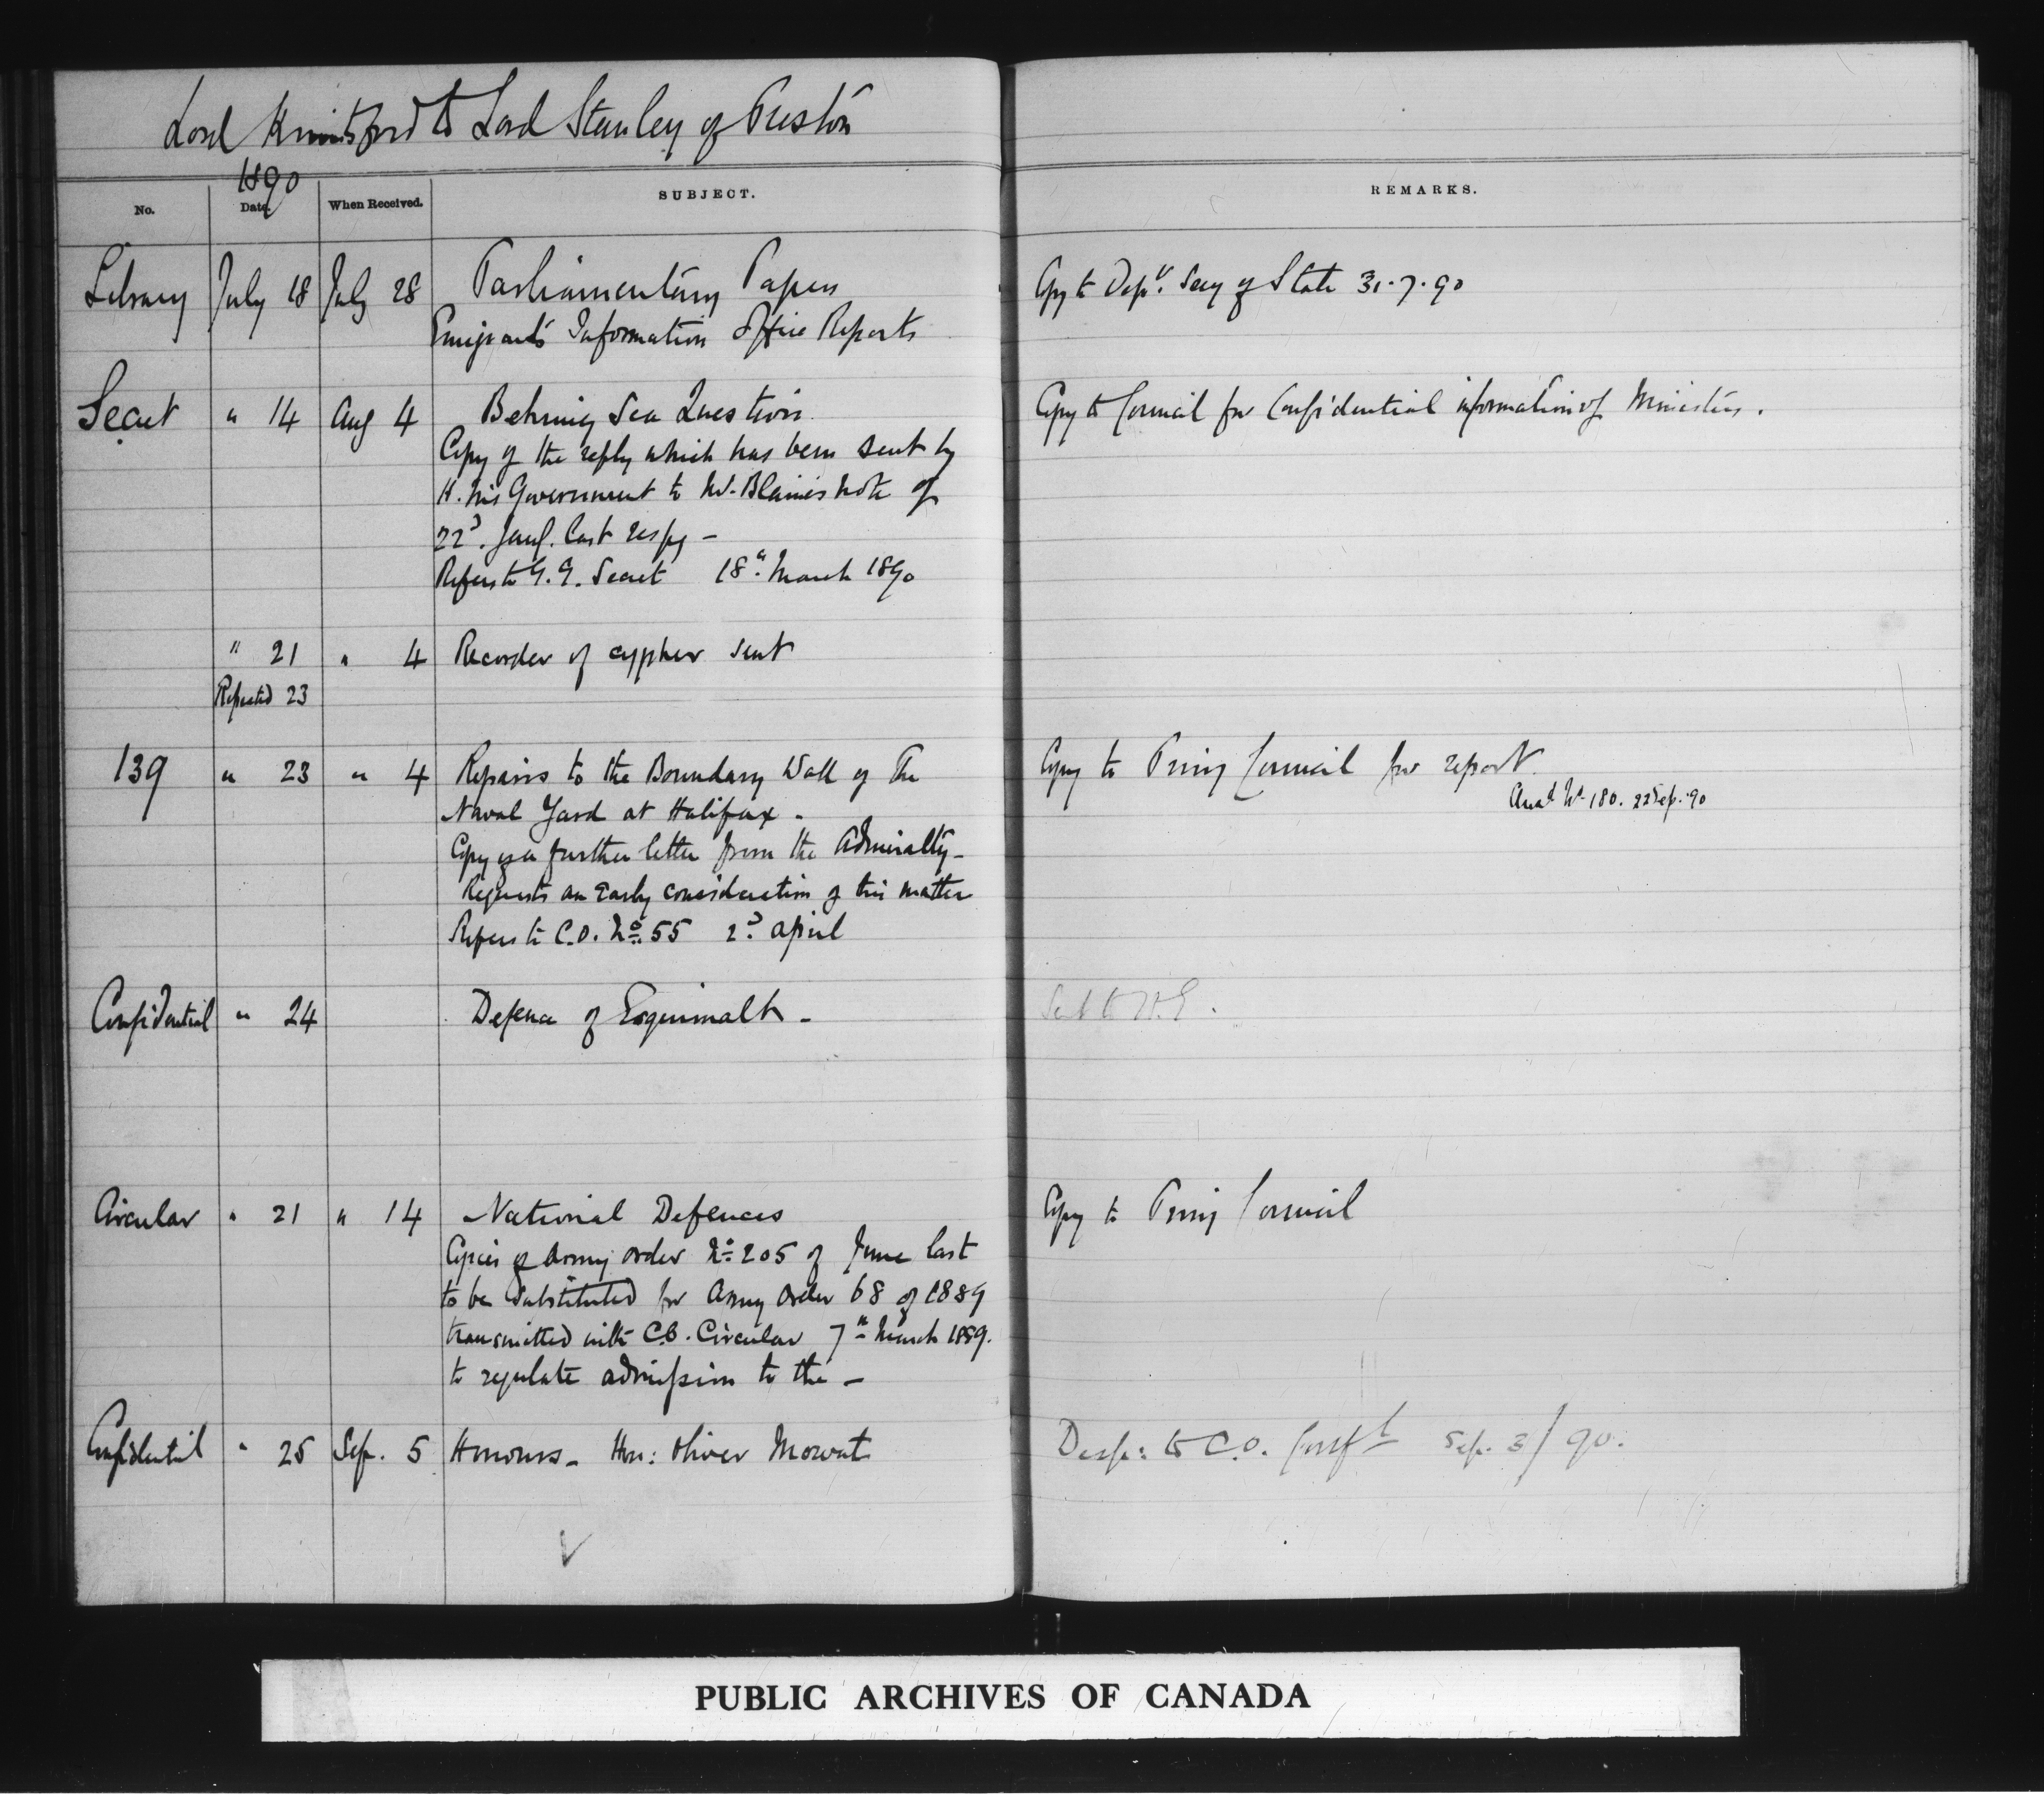 Lord Knutsford to Lord Stanley of Preston
1890
No. Date. When Received. SUBJECT. REMARKS.
Library July 18 July 28 Parliamentary Papers Copy to Depy. Secy of State 31.7.90
Emigrants' Information Office Reports
Secret " 14 Aug 4 Behring Sea Question Copy to Council for Confidential information of Ministers.
Copy of the reply which has been sent by
H. M's Government to Mr. Blaine's note of
22d. Jany. last respg —
Refers to G.G. Secret 18th March 1890
" 21 " 4 Recorder of cypher sent
Repeated 23
139 " 23 " 4 Repairs to the Boundary Wall of the Copy to Privy Council for report.
Naval Yard at Halifax - Ansd No. 180. 22 Sep. 90
Copy of a further letter from the Admiralty -
Requests an early consideration of this matter
Refers to C.O. No. 55 2d April
Confidential " 24 Defence of Esquimalt - Sent to H.E.
Circular " 21 " 14 National Defences Copy to Privy Council
Copies of Army order No. 205 of June last
to be substituted for Army Order 68 of 1889
transmitted with C.O. Circular 7th March 1889.
to regulate admission to the —
Confidential " 25 Sep. 5 Honours - Hon: Oliver Mowat Desp: to C.O. Conf Sep. 3/90.
PUBLIC ARCHIVES OF CANADA